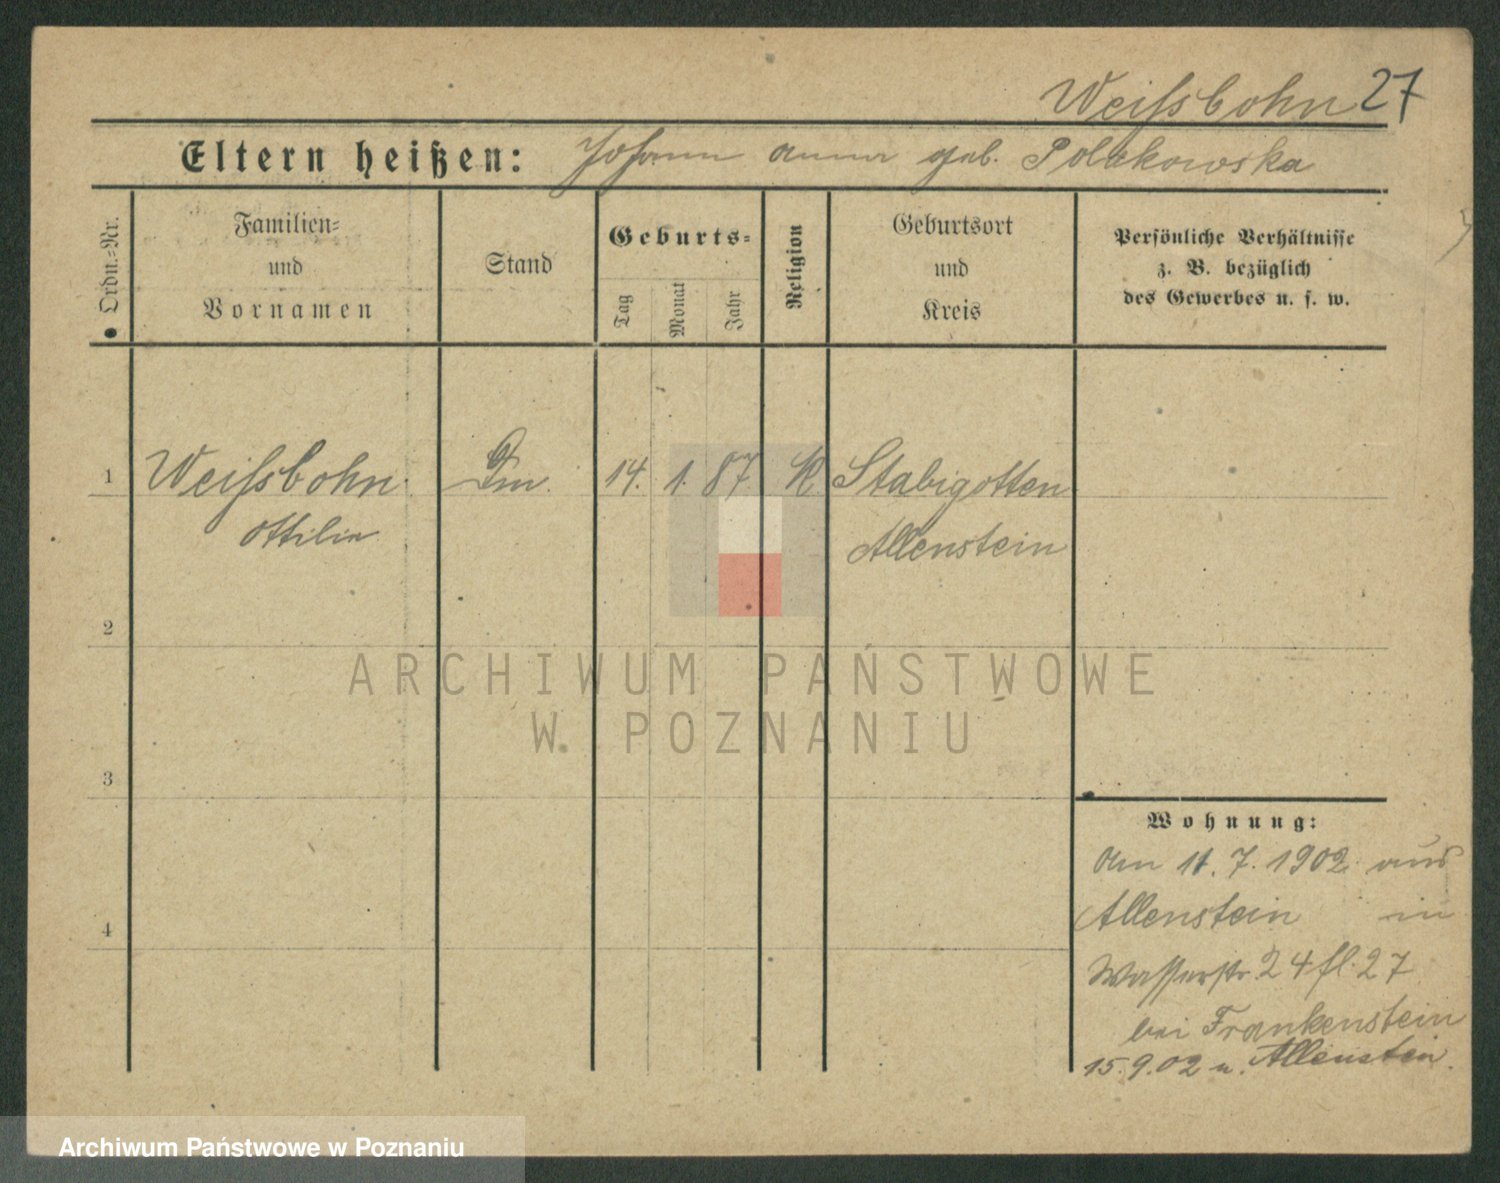 Weißsbohn 27
Eltern heißen: Johann Anna geb. Polakowska
Ordn.-Nr.
Familien-
und
Vornamen
Stand
Geburts-
Tag
Monat
Jahr
Religion
Geburtsort
und
Kreis
Persönliche Verhältnisse
z. B. bezüglich
des Gewerbes u. s. w.
1 Weifsbohn Dm. 14. 1. 87 K. Stabigotten
Ottilie Allenstein
2
3
4
Wohnung:
Am 11.7.1902 aus
Allenstein in
Wasserstr 24 fl. 27
bei Frankenstein
15.9.02 n. Allenstein.
ARCHIWUM PAŃSTWOWE
W POZNANIU
Archiwum Państwowe w Poznaniu